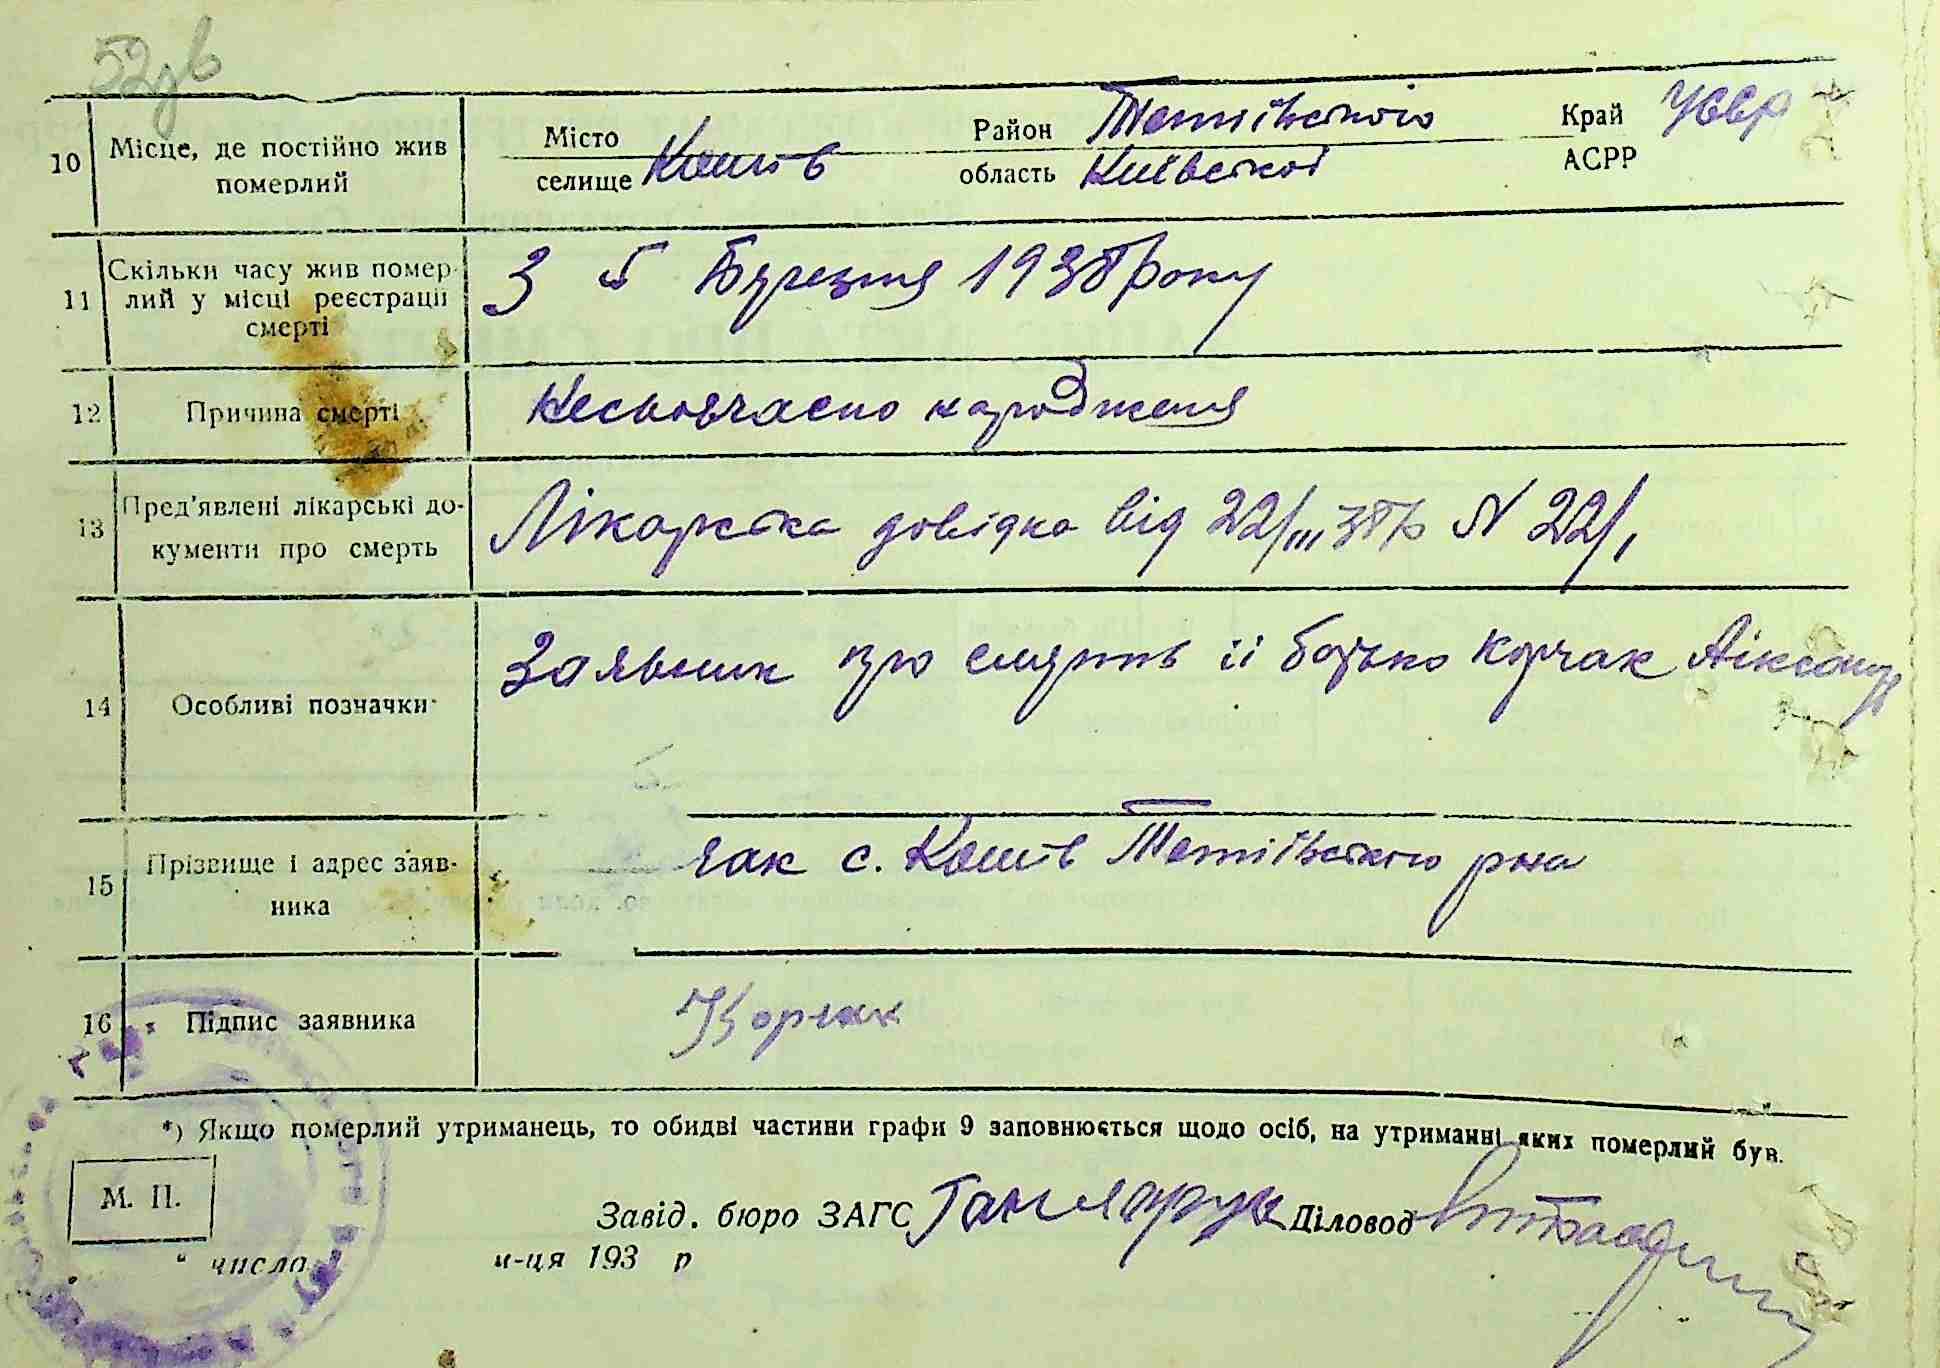 52
10 Місце, де постійно жив померлий
Місто селище Кашів
Район Тетіївського
область Київської
Край АСРР УССР
11 Скільки часу жив померлий у місці реєстрації смерті
З 5 Березня 1938 року
12 Причина смерті
Несвоєчасно народження
13 Пред'явлені лікарські документи про смерть
Лікарська довідка від 22/III 38 р N 22/1
14 Особливі позначки
Заявник про смерть її батько Корчак Аіксандр
15 Прізвище і адрес заявника
чак с. Кашів Тетіївського рна
16 Підпис заявника
Корчак
*) Якщо померлий утриманець, то обидві частини графи 9 заповнюється щодо осіб, на утриманні яких померлий був.
М. П.
Завід. бюро ЗАГС
Діловод
" число м-ця 193 р